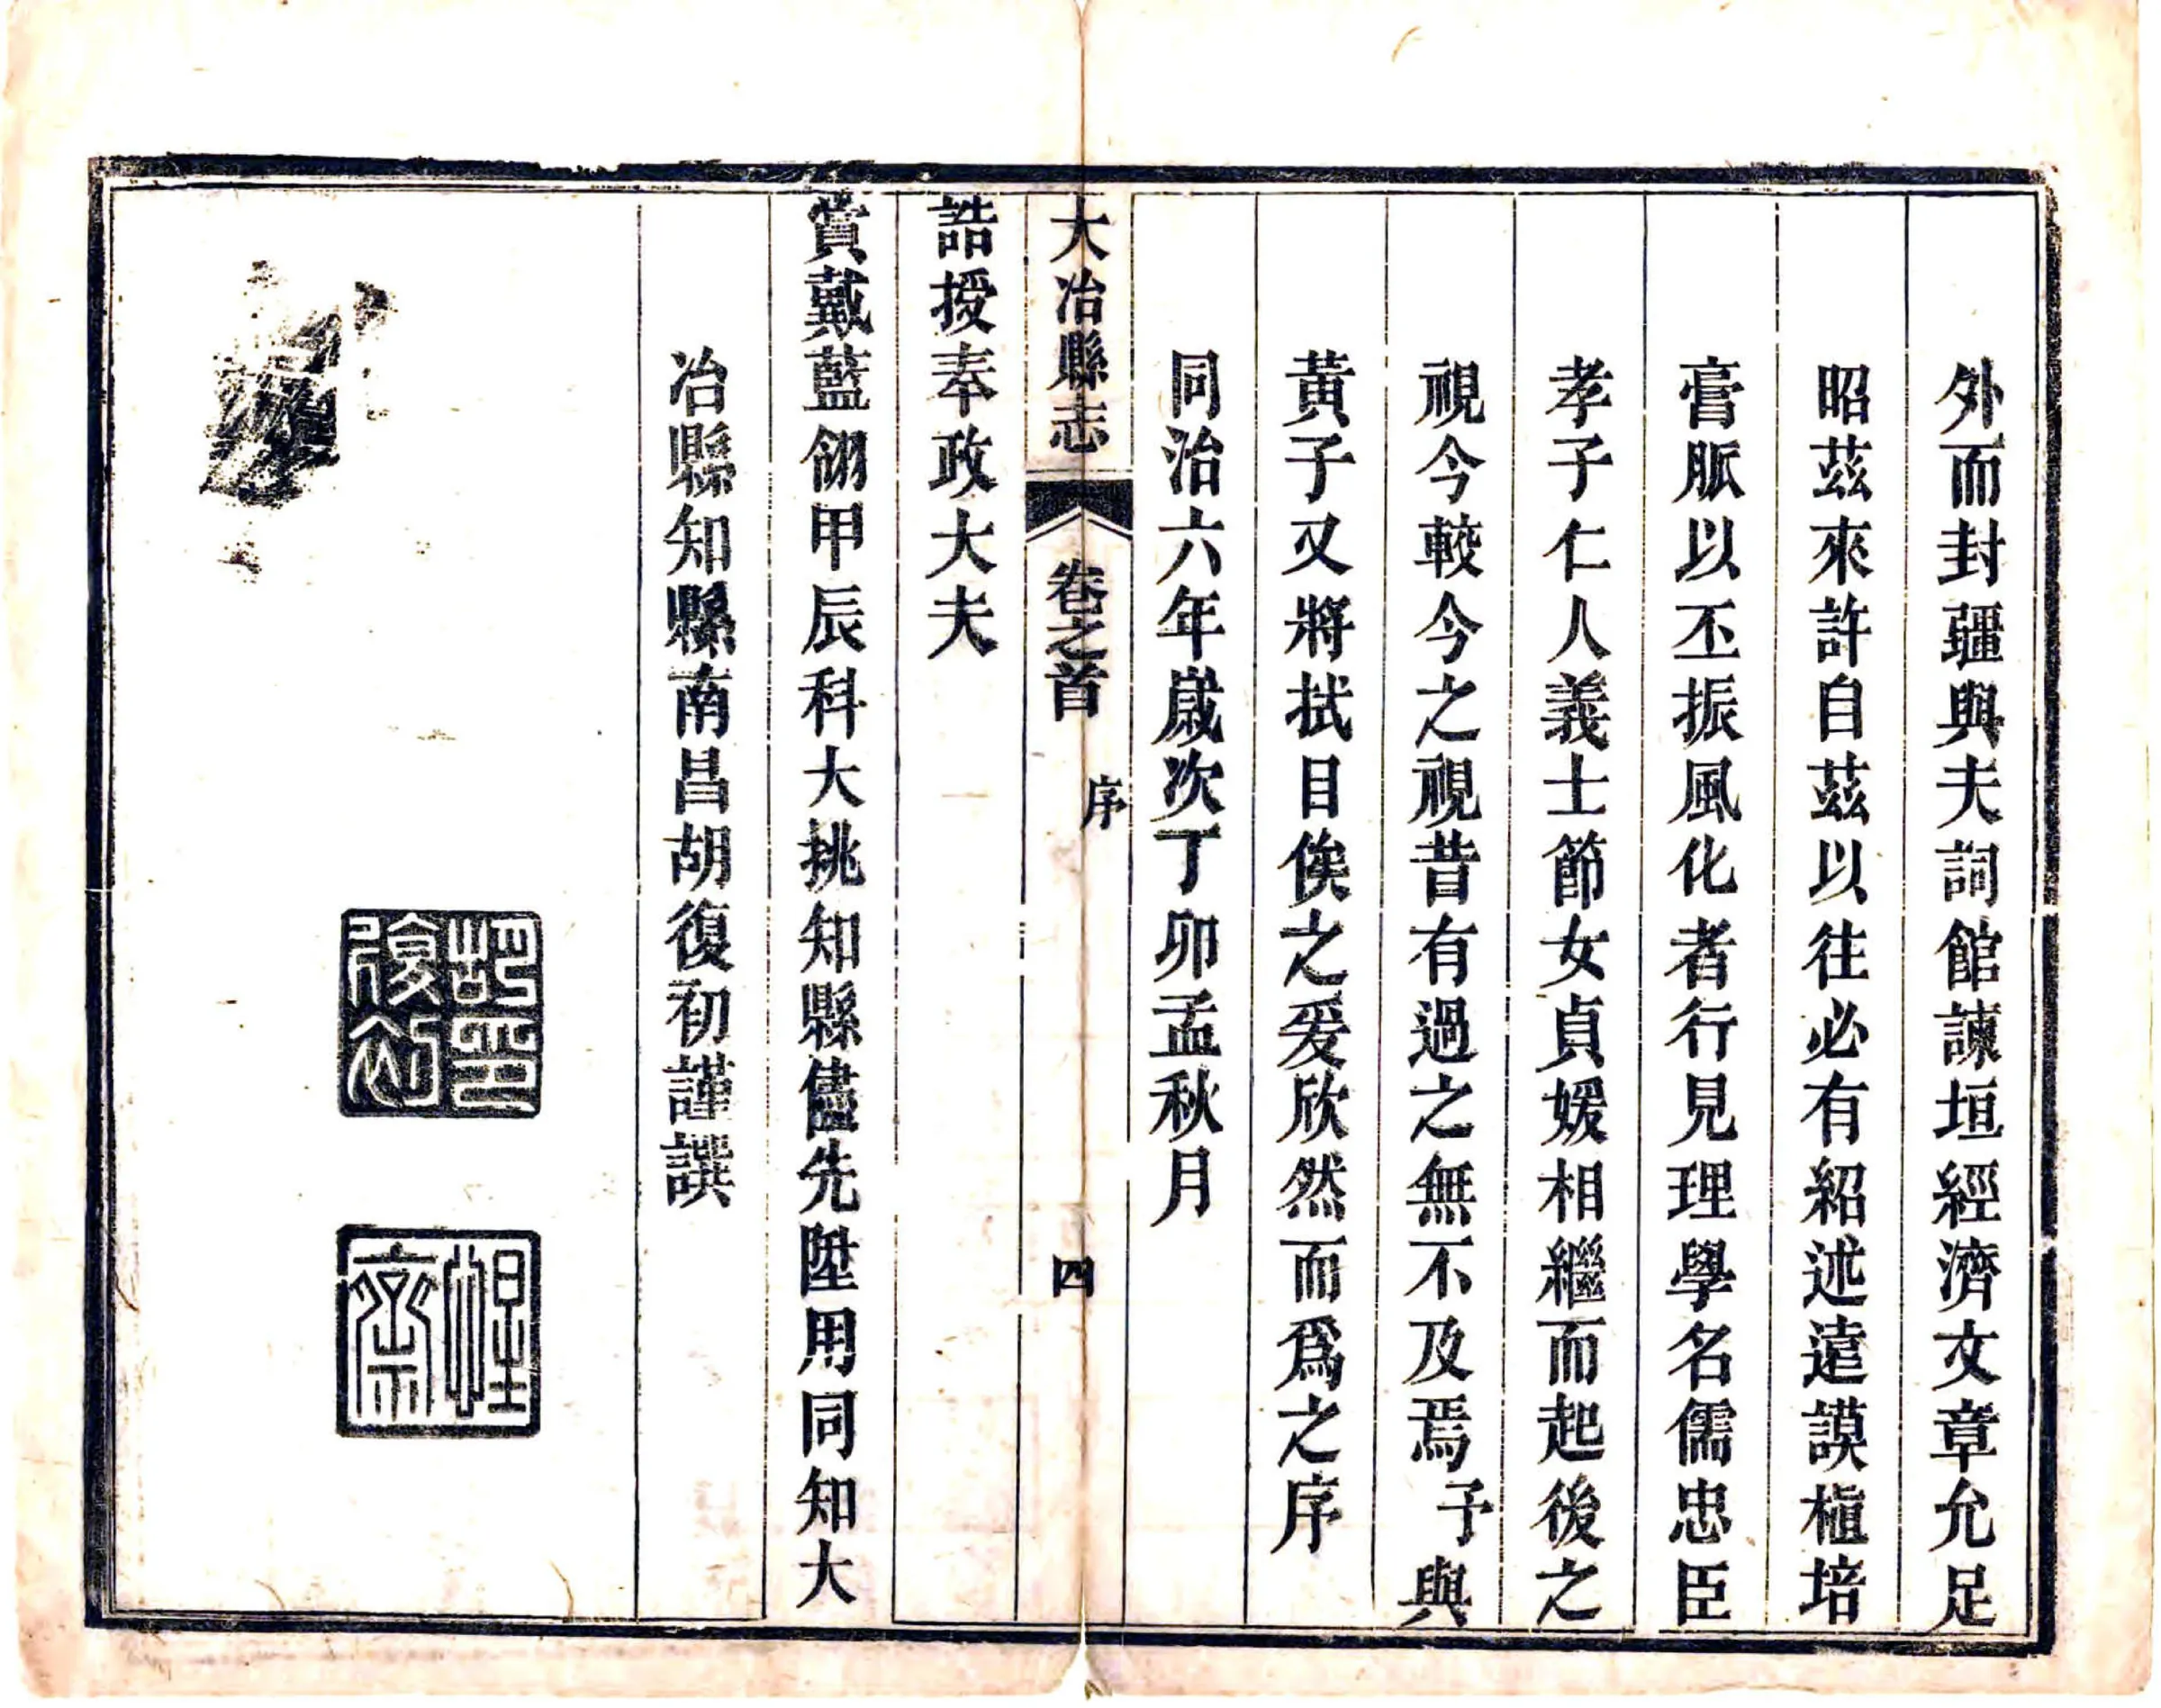 外而封疆與夫詞館諫垣經濟文章允足
昭茲來許自茲以往必有紹述遠謨植培
膏脈以丕振風化者行見理學名儒忠臣
孝子仁人義士節女貞媛相繼而起後之
視今較今之視昔有過之無不及焉予與
黃子又將拭目俟之爰欣然而爲之序
同治六年歲次丁卯孟秋月
大冶縣志 卷之首 序 四
誥授奉政大夫
賞戴藍翎甲辰科大挑知縣儘先陞用同知大
冶縣知縣南昌胡復初謹譔
胡印
復初
惺
齋